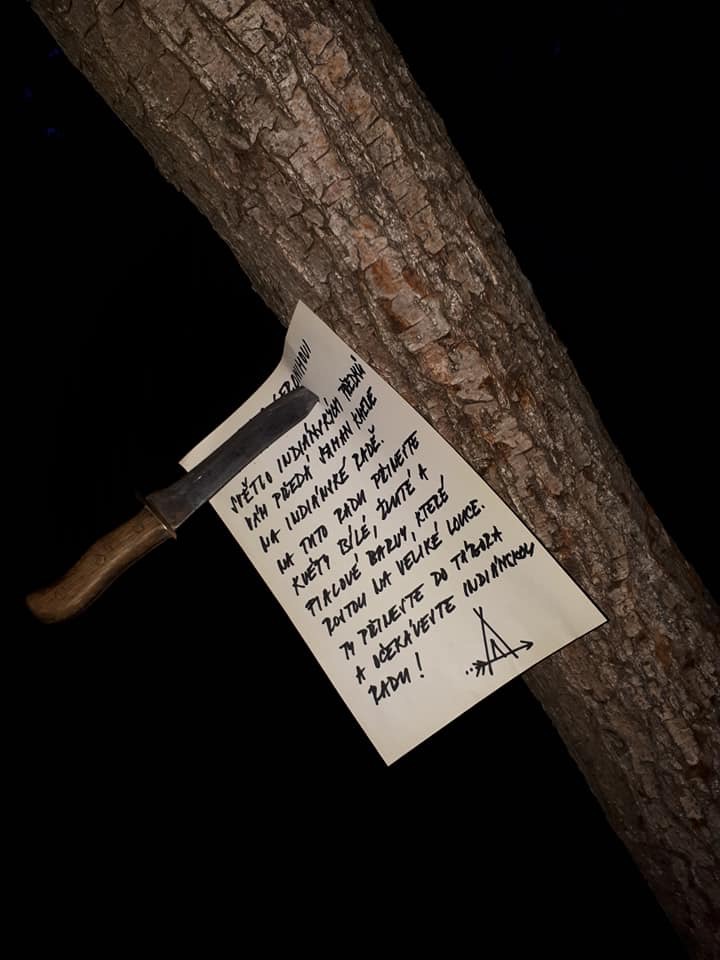 GERONIMOVI
SVĚTLO INDIÁNSKÝCH PŘEDKŮ
VÁM PŘEDÁ ŠAMAN KHELE
NA INDIÁNSKÉ RADĚ.
NA TUTO RADU PŘINESTE
KVĚTY BÍLÉ, ŽLUTÉ A
FIALOVÉ BARVY, KTERÉ
ROSTOU NA VELIKÉ LOUCE.
TY PŘINESTE DO TÁBORA
A OČEKÁVEJTE INDIÁNSKOU
RADU!